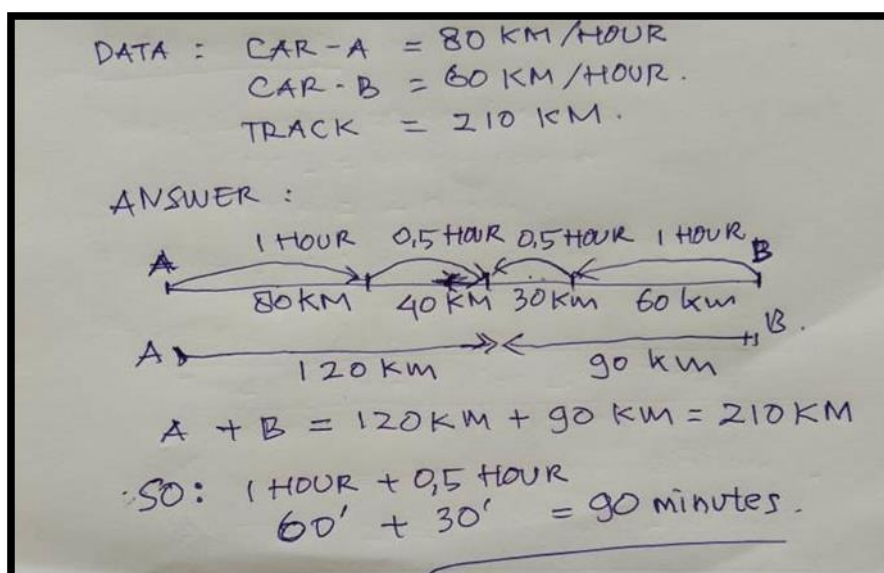 DATA : CAR-A = 80 KM/HOUR
CAR-B = 60 KM/HOUR.
TRACK = 210 KM.
ANSWER :
1 HOUR 0,5 HOUR 0,5 HOUR 1 HOUR
A B
80 KM 40 KM 30 Km 60 km
A B.
120 KM 90 km
A + B = 120 KM + 90 KM = 210 KM
SO: 1 HOUR + 0,5 HOUR
60' + 30' = 90 minutes.